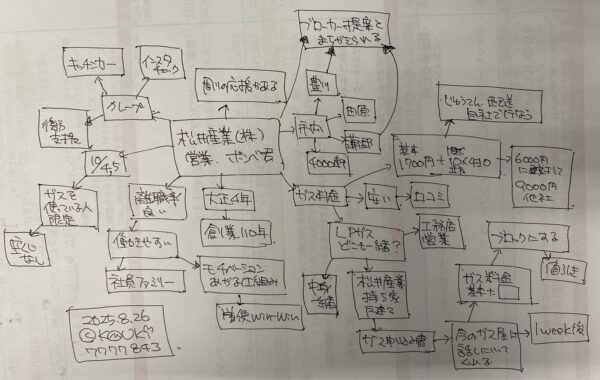 ブローカー提案と
まちがえられる
キッチンカー
インスタ
チェック
クレープ
後方
支援
10/4.5
豊川
市内
田原
蒲郡
4000軒
松井産業(株)
営業・ボンベ君
じゅうてん、配送
自社で行なう
基本
1700円+
6000円
9000円
他社
ガスを
使っている人
限定
安心
なし
離職率
良い
大正4年
創業110年
ガス料金
安い
口コミ
働きやすい
社員ファミリー
モチベーション
あがる仕組み
労使win-win
LPガス
どこも一緒?
工務店
営業
中身
一緒
松井産業
持ち家
戸建て
ガス申込み書
今のガス屋に
話しにいって
くれる
1week後
ガス料金
基本+
ブロックにする
値引き
2025.8.26
7777843